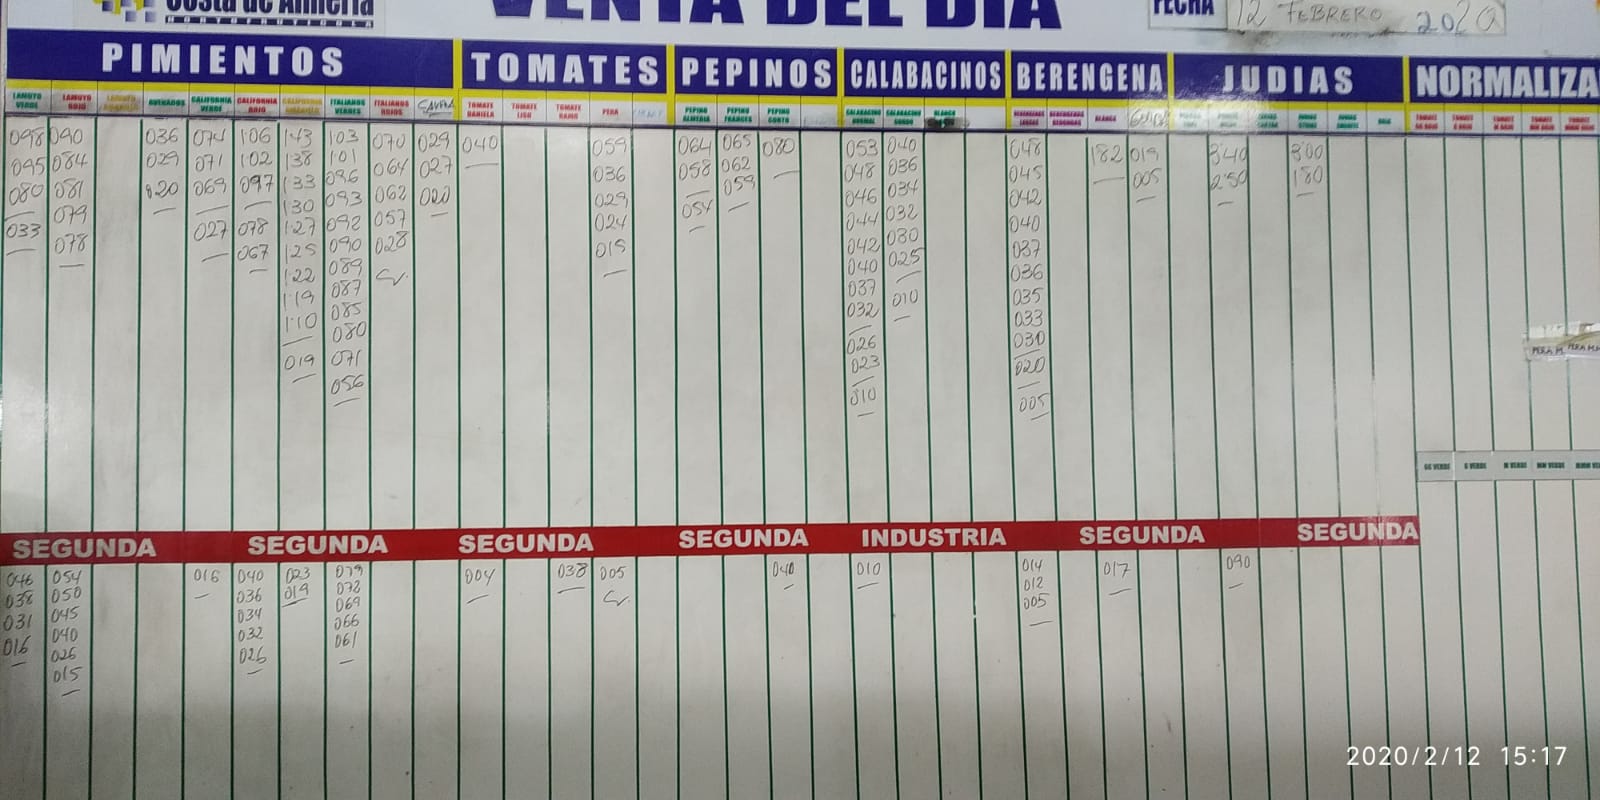 Costa de Almería
HORTOFRUTICOLA
VENTA DEL DIA
FECHA 12 FEBRERO 2020
PIMIENTOS TOMATES PEPINOS CALABACINOS BERENGENA JUDIAS NORMALIZA
LAMUYO VERDE
LAMUYO ROJO
LAMUYO AMARILLO
ASURADOS
CALIFORNIA VERDE
CALIFORNIA ROJO
CALIFORNIA AMARILLO
ITALIANOS VERDES
ITALIANOS ROJOS
TOMATE DANIELA
TOMATE LISO
TOMATE RAMO
PERA
PEPINO ALMERIA
PEPINO FRANCES
PEPINO CORTO
CALABACINO NORMAL
CALABACINO GORDO
BLANCO
BLANCA
098
095
080
033
090
084
081
079
078
036
029
020
074
071
069
027
106
102
097
078
067
143
138
133
130
127
125
122
119
110
019
103
101
096
093
092
090
089
087
085
080
071
056
070
064
062
057
028
029
027
020
040
059
036
029
024
015
064
058
054
065
062
059
080
053
048
046
044
042
040
037
032
026
023
010
040
036
034
032
030
025
010
048
045
042
040
037
036
035
033
030
020
005
182
019
005
3'40
2'50
3'00
180
PERA M.
PERA M.
GG VERDE G VERDE M VERDE MM VERDE
SEGUNDA SEGUNDA SEGUNDA SEGUNDA INDUSTRIA SEGUNDA SEGUNDA
046
038
031
016
054
050
045
040
026
015
016
040
036
034
032
026
023
019
079
072
069
066
061
004
038
005
040
010
014
012
005
017
090
2020/2/12 15:17